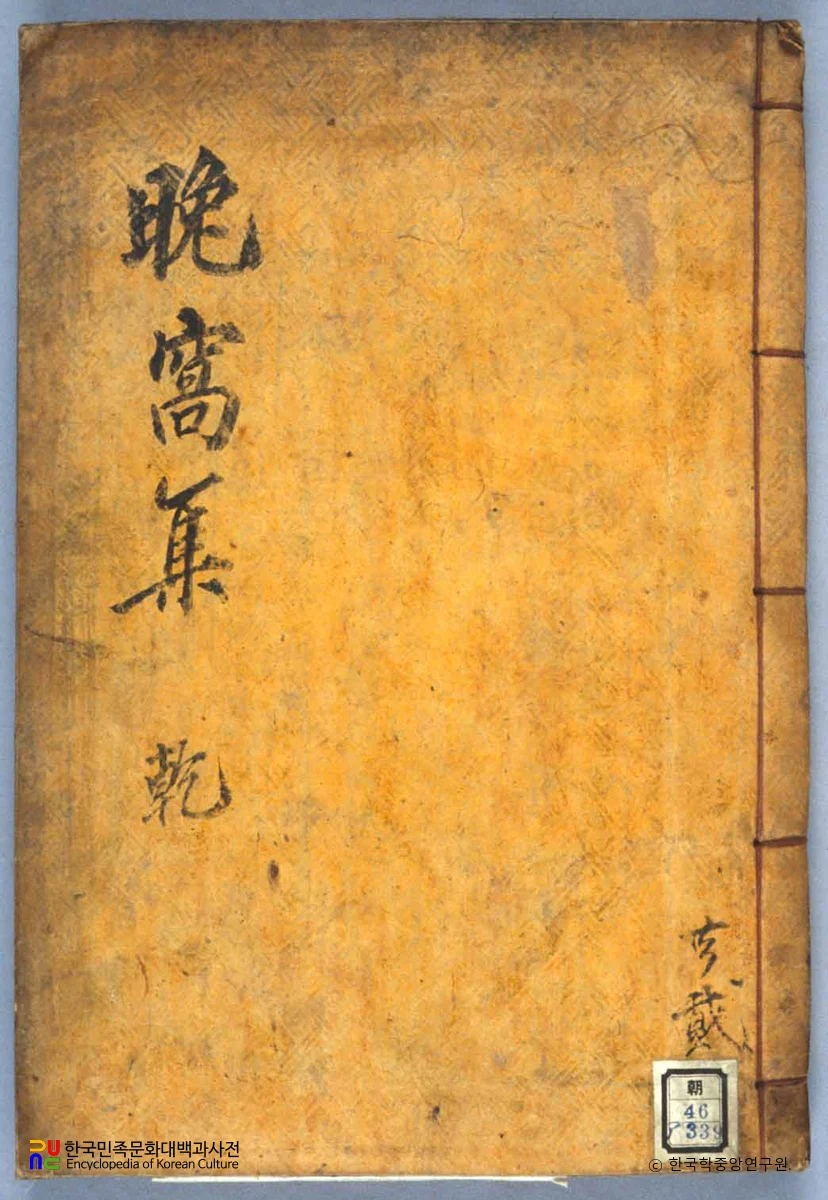 晩窩集 乾
共貳
朝
46
339
한국민족문화대백과사전
Encyclopedia of Korean Culture
© 한국학중앙연구원